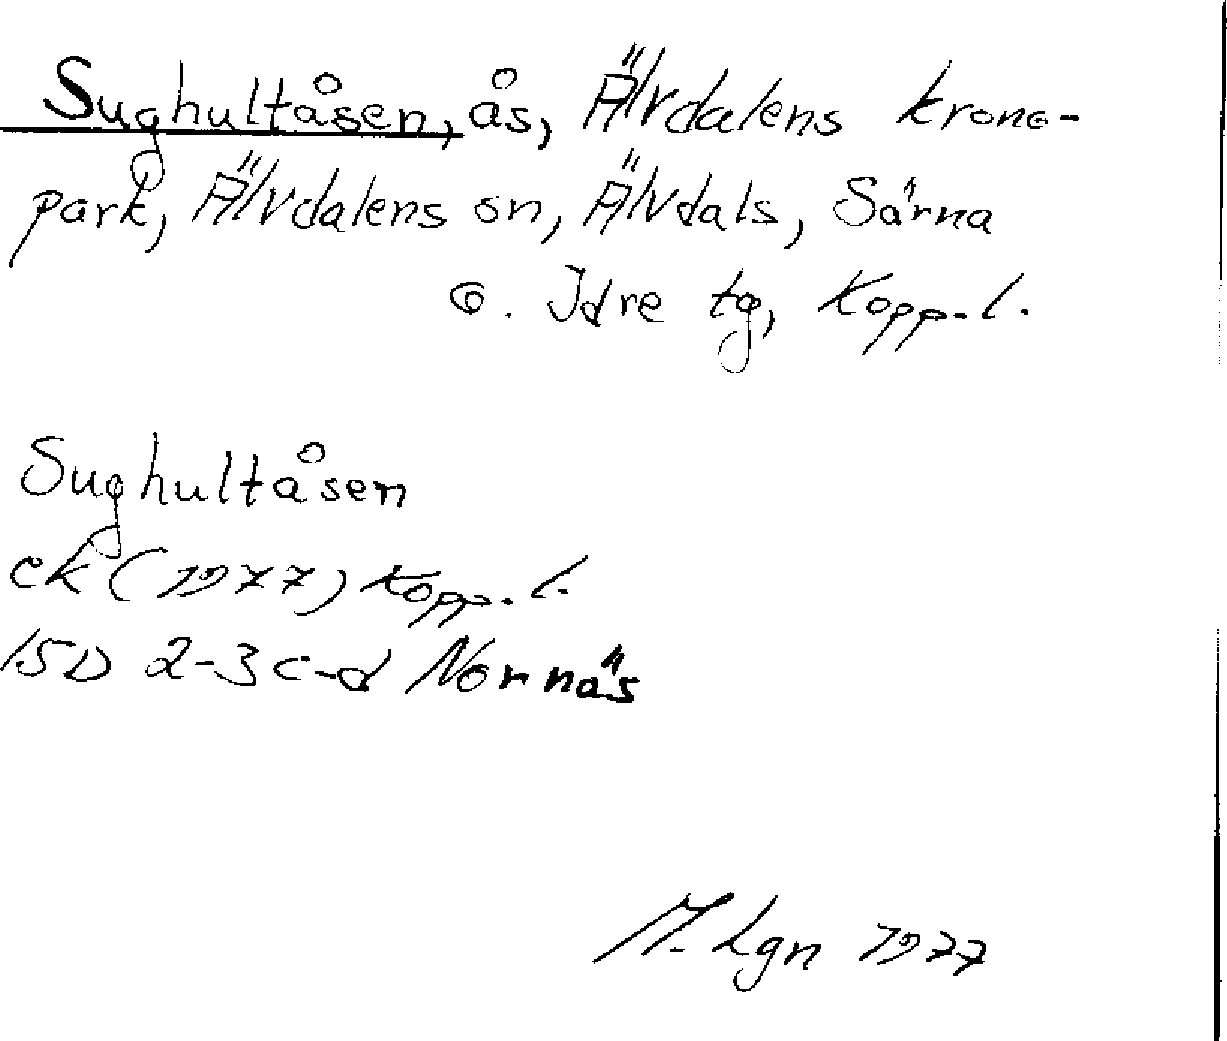 Sughultåsen, ås, Älvdalens krono-
park, Älvdalens sn, Älvdals, Särna
o. Idre tg, Kopp. l.
Sughultåsen
ek (1977) Kopp. l.
15D 2-3 c-d Nornäs
M. Lgn 1977